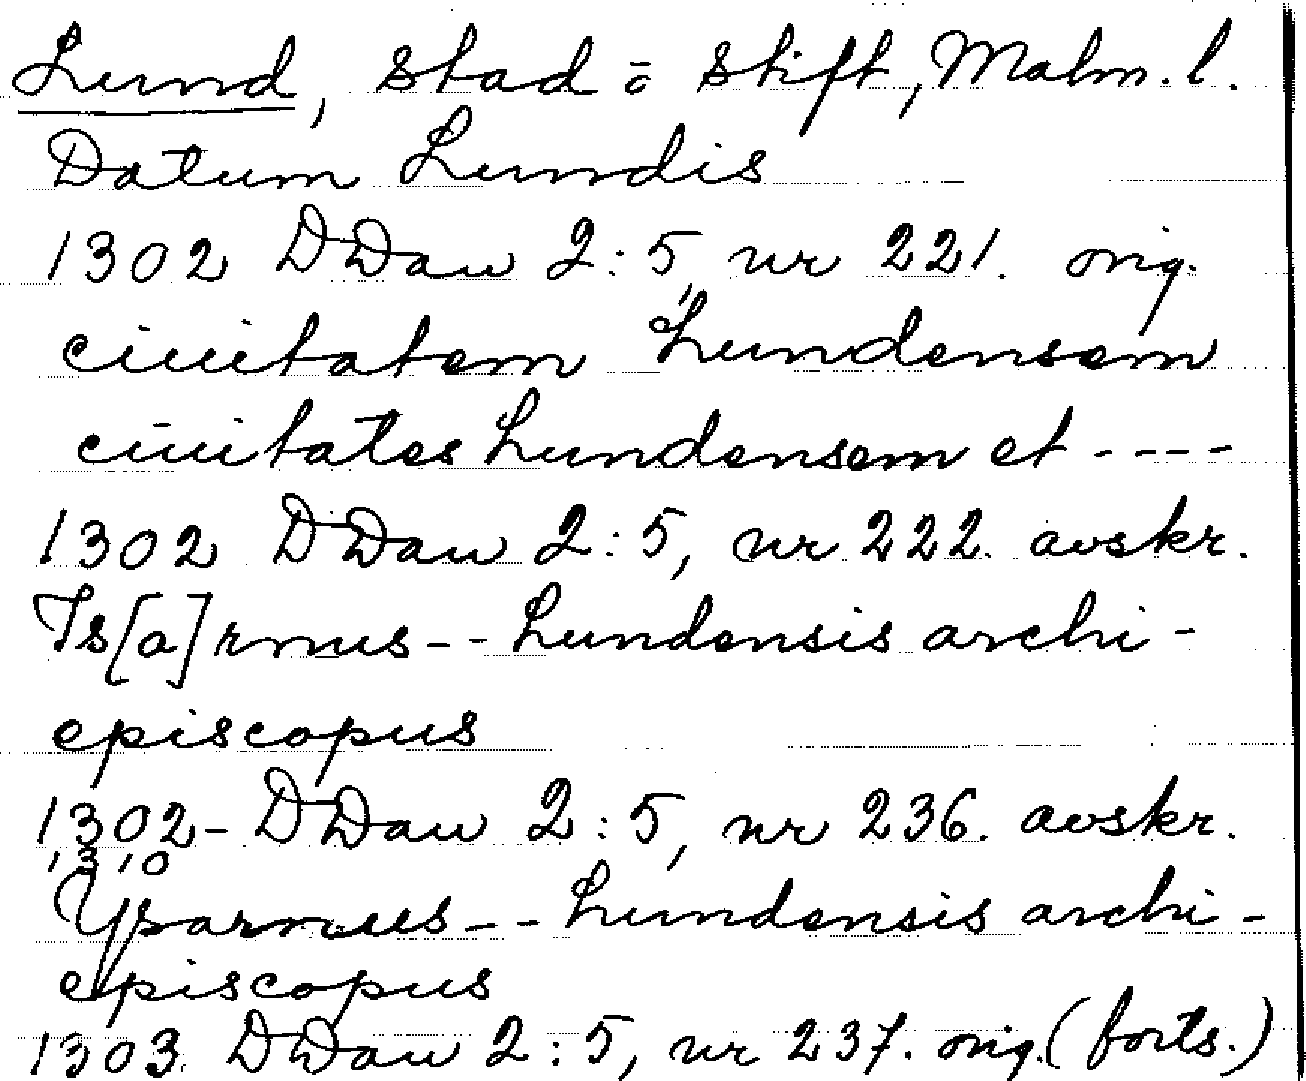 Lund, stad o stift, Malm. l.
Datum Lundis
1302 DDan 2:5, nr 221. orig.
ciuitatem Lundensem
ciuitates Lundensem et ----
1302 DDan 2:5, nr 222. avskr.
Is[a]rnus -- Lundensis archi-
episcopus
1302- DDan 2:5, nr 236. avskr.
1310
Ysarnus -- Lundensis archi-
episcopus
1303 DDan 2:5, nr 237. orig. (forts.)